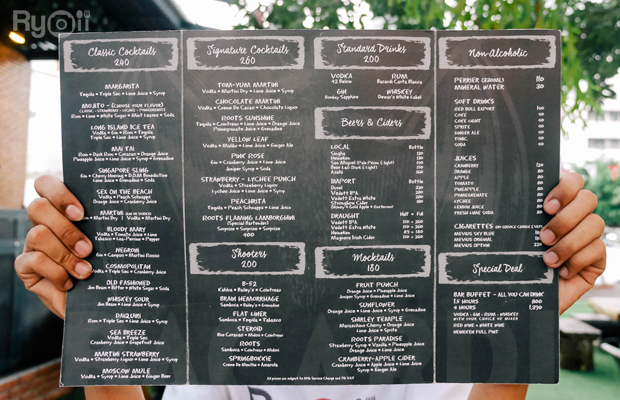 Ryoii
Classic Cocktails
240
MARGARITA
Tequila + Triple Sec + Lime Juice + Syrup
MOJITO - (CHOOSE YOUR FLAVOR)
Rum + Lime + White Sugar + Mint Leaves + Soda
LONG ISLAND ICE TEA
MAI TAI
Pineapple Juice + Lime Juice + Syrup + Grenadine
SINGAPORE SLING
SEX ON THE BEACH
Vodka + Peach Schnapps
Orange Juice + Cranberry Juice
MARTINI
BLOODY MARY
Vodka + Tomato Juice + Lime
Tabasco + Lea-Perrins + Pepper
NEGRONI
Gin + Campari + Martini Rosso
COSMOPOLITAN
Vodka + Triple Sec + Cranberry Juice
OLD FASHIONED
Jim Beam + Bitter + White Sugar + Soda
WHISKEY SOUR
Jim Beam + Lime Juice + Syrup
DAIQUIRI
Rum + Lime Juice + Syrup
SEA BREEZE
Cranberry Juice + Grapefruit Juice
MARTINI STRAWBERRY
Vodka + Strawberry Liquor + Lime Juice + Syrup
MOSCOW MULE
Vodka + Lime Juice + Ginger Beer
Signature Cocktails
260
TOM-YUM MARTINI
Vodka + Martini Dry + Lime Juice + Syrup
CHOCOLATE MARTINI
Vodka + Creme De Cacao + Chocolate Liquor
ROOTS SUNSHINE
Tequila + Cointreau + Lime Juice + Orange Juice
Pomegranate Juice + Grenadine
YELLOW LEAF
Vodka + Malibu + Lime Juice + Ginger Ale
PINK ROSE
Gin + Cranberry Juice + Lime Juice
Juniper Syrup + Soda
STRAWBERRY - LYCHEE PUNCH
Vodka + Strawberry Liquor
Lychee Juice + Lime Juice + Syrup
PEACHRITA
Tequila + Peach Schnapps + Lime Juice + Syrup
ROOTS FLAMING LAMBORGHINI
(Special Bartender)
Surprise + Surprise + Surprise + Surprise
400
Shooters
200
B-52
Kahlua + Bailey's + Cointreau
BRAIN HEMORRHAGE
Sambuca + Bailey's + Grenadine
FLAT LINER
Sambuca + Tequila + Tabasco
STEROID
Blue Curacao + Midori + Cointreau
ROOTS
Sambuca + Midori + Cointreau
SPRINGBOKKIE
Creme De Menthe + Amarula
Standard Drinks
200
VODKA
42 Below
RUM
Bacardi Carta Blanca
GIN
Bombay Sapphire
WHISKEY
Dewar's White Label
Beers & Ciders
LOCAL Bottle
Singha
Heineken
Beer Lao (Dark / Gold)
Asahi
IMPORT Bottle
Duvel
Vedett IPA
Vedett Extra White
Strongbow Cider
DRAUGHT Half - Full
Duvel
Vedett IPA
Vedett Extra White
Heineken
Magners Irish Cider
Mocktails
180
FRUIT PUNCH
Orange Juice + Pineapple Juice
Juniper Syrup + Grenadine + Lime Juice
SUNFLOWER
Orange Juice + Lime Juice + Syrup + Soda
SHIRLEY TEMPLE
Maraschino Cherry + Orange Juice
Lime Juice + Sprite
ROOTS PARADISE
Strawberry Syrup + Vanilla + Pineapple Juice
Orange Juice + Lime Juice
CRANBERRY-APPLE CIDER
Cranberry Juice + Apple Juice + Lime Juice
Syrup + Ginger Ale
Non-Alcoholic
PERRIER (330ML) 110
MINERAL WATER 30
SOFT DRINKS
RED BULL EXPORT
COKE
COKE LIGHT
SPRITE
GINGER ALE
TONIC
SODA
JUICES
CRANBERRY
ORANGE
APPLE
TOMATO
PINEAPPLE
POMEGRANATE
LYCHEE
LEMON JUICE
FRESH LIME SODA
CIGARETTES
MEVIUS SKY BLUE
MEVIUS ORIGINAL
MEVIUS OPTION
Special Deal
BAR BUFFET - ALL YOU CAN DRINK
800
4 HOURS 1,250
VODKA - GIN - RUM - WHISKEY
WITH YOUR CHOICE OF MIXER
RED WINE - WHITE WINE
HEINEKEN FULL PINT
All prices are subject to 10% Service Charge and 7% VAT